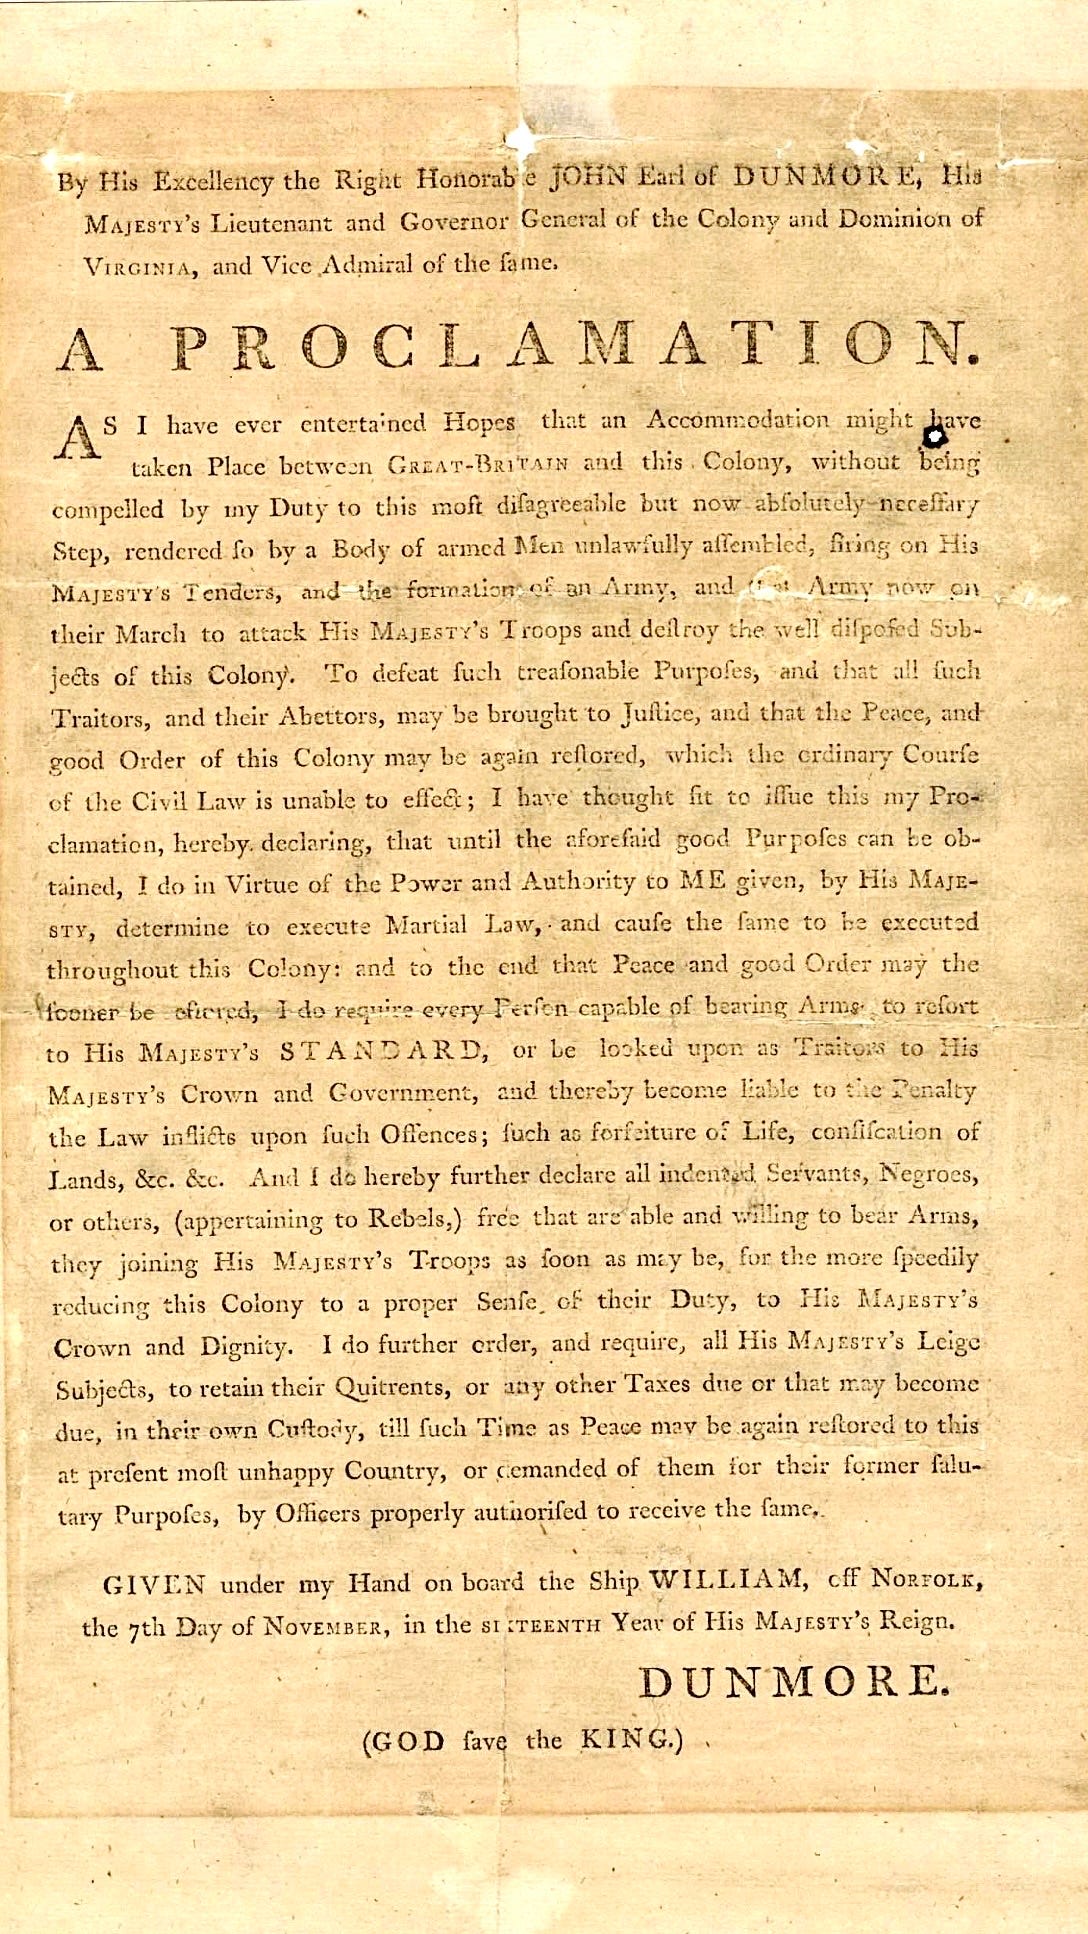 By His Excellency the Right Honorable JOHN Earl of DUNMORE, His
MAJESTY'S Lieutenant and Governor General of the Colony and Dominion of
VIRGINIA, and Vice Admiral of the ſame.
A PROCLAMATION.
AS I have ever entertained Hopes that an Accommodation might have
taken Place between GREAT-BRITAIN and this Colony, without being
compelled by my Duty to this moſt diſagreeable but now abſolutely neceſſary
Step, rendered ſo by a Body of armed Men unlawfully aſſembled, firing on His
MAJESTY'S Tenders, and the formation of an Army, and that Army now on
their March to attack His MAJESTY'S Troops and deſtroy the well diſpoſed Sub-
jects of this Colony. To defeat ſuch treaſonable Purpoſes, and that all ſuch
Traitors, and their Abettors, may be brought to Juſtice, and that the Peace, and
good Order of this Colony may be again reſtored, which the ordinary Courſe
of the Civil Law is unable to effect; I have thought fit to iſſue this my Pro-
clamation, hereby declaring, that until the aforeſaid good Purpoſes can be ob-
tained, I do in Virtue of the Power and Authority to ME given, by His MAJE-
STY, determine to execute Martial Law, and cauſe the ſame to be executed
throughout this Colony: and to the end that Peace and good Order may the
ſooner be I do require every Perſon capable of bearing Arms, to reſort
to His MAJESTY'S STANDARD, or be looked upon as Traitors to His
MAJESTY'S Crown and Government, and thereby become liable to the Penalty
the Law inflicts upon ſuch Offences; ſuch as forfeiture of Life, confiſcation of
Lands, &c. &c. And I do hereby further declare all indented Servants, Negroes,
or others, (appertaining to Rebels,) free that are able and willing to bear Arms,
they joining His MAJESTY'S Troops as ſoon as may be, for the more ſpeedily
reducing this Colony to a proper Senſe of their Duty, to His MAJESTY'S
Crown and Dignity. I do further order, and require, all His MAJESTY'S Leige
Subjects, to retain their Quitrents, or any other Taxes due or that may become
due, in their own Cuſtody, till ſuch Time as Peace may be again reſtored to this
at preſent moſt unhappy Country, or demanded of them for their former ſalu-
tary Purpoſes, by Officers properly authoriſed to receive the ſame.
GIVEN under my Hand on board the Ship WILLIAM, off NORFOLK,
the 7th Day of NOVEMBER, in the SIXTEENTH Year of His MAJESTY'S Reign.
DUNMORE.
(GOD ſave the KING.)